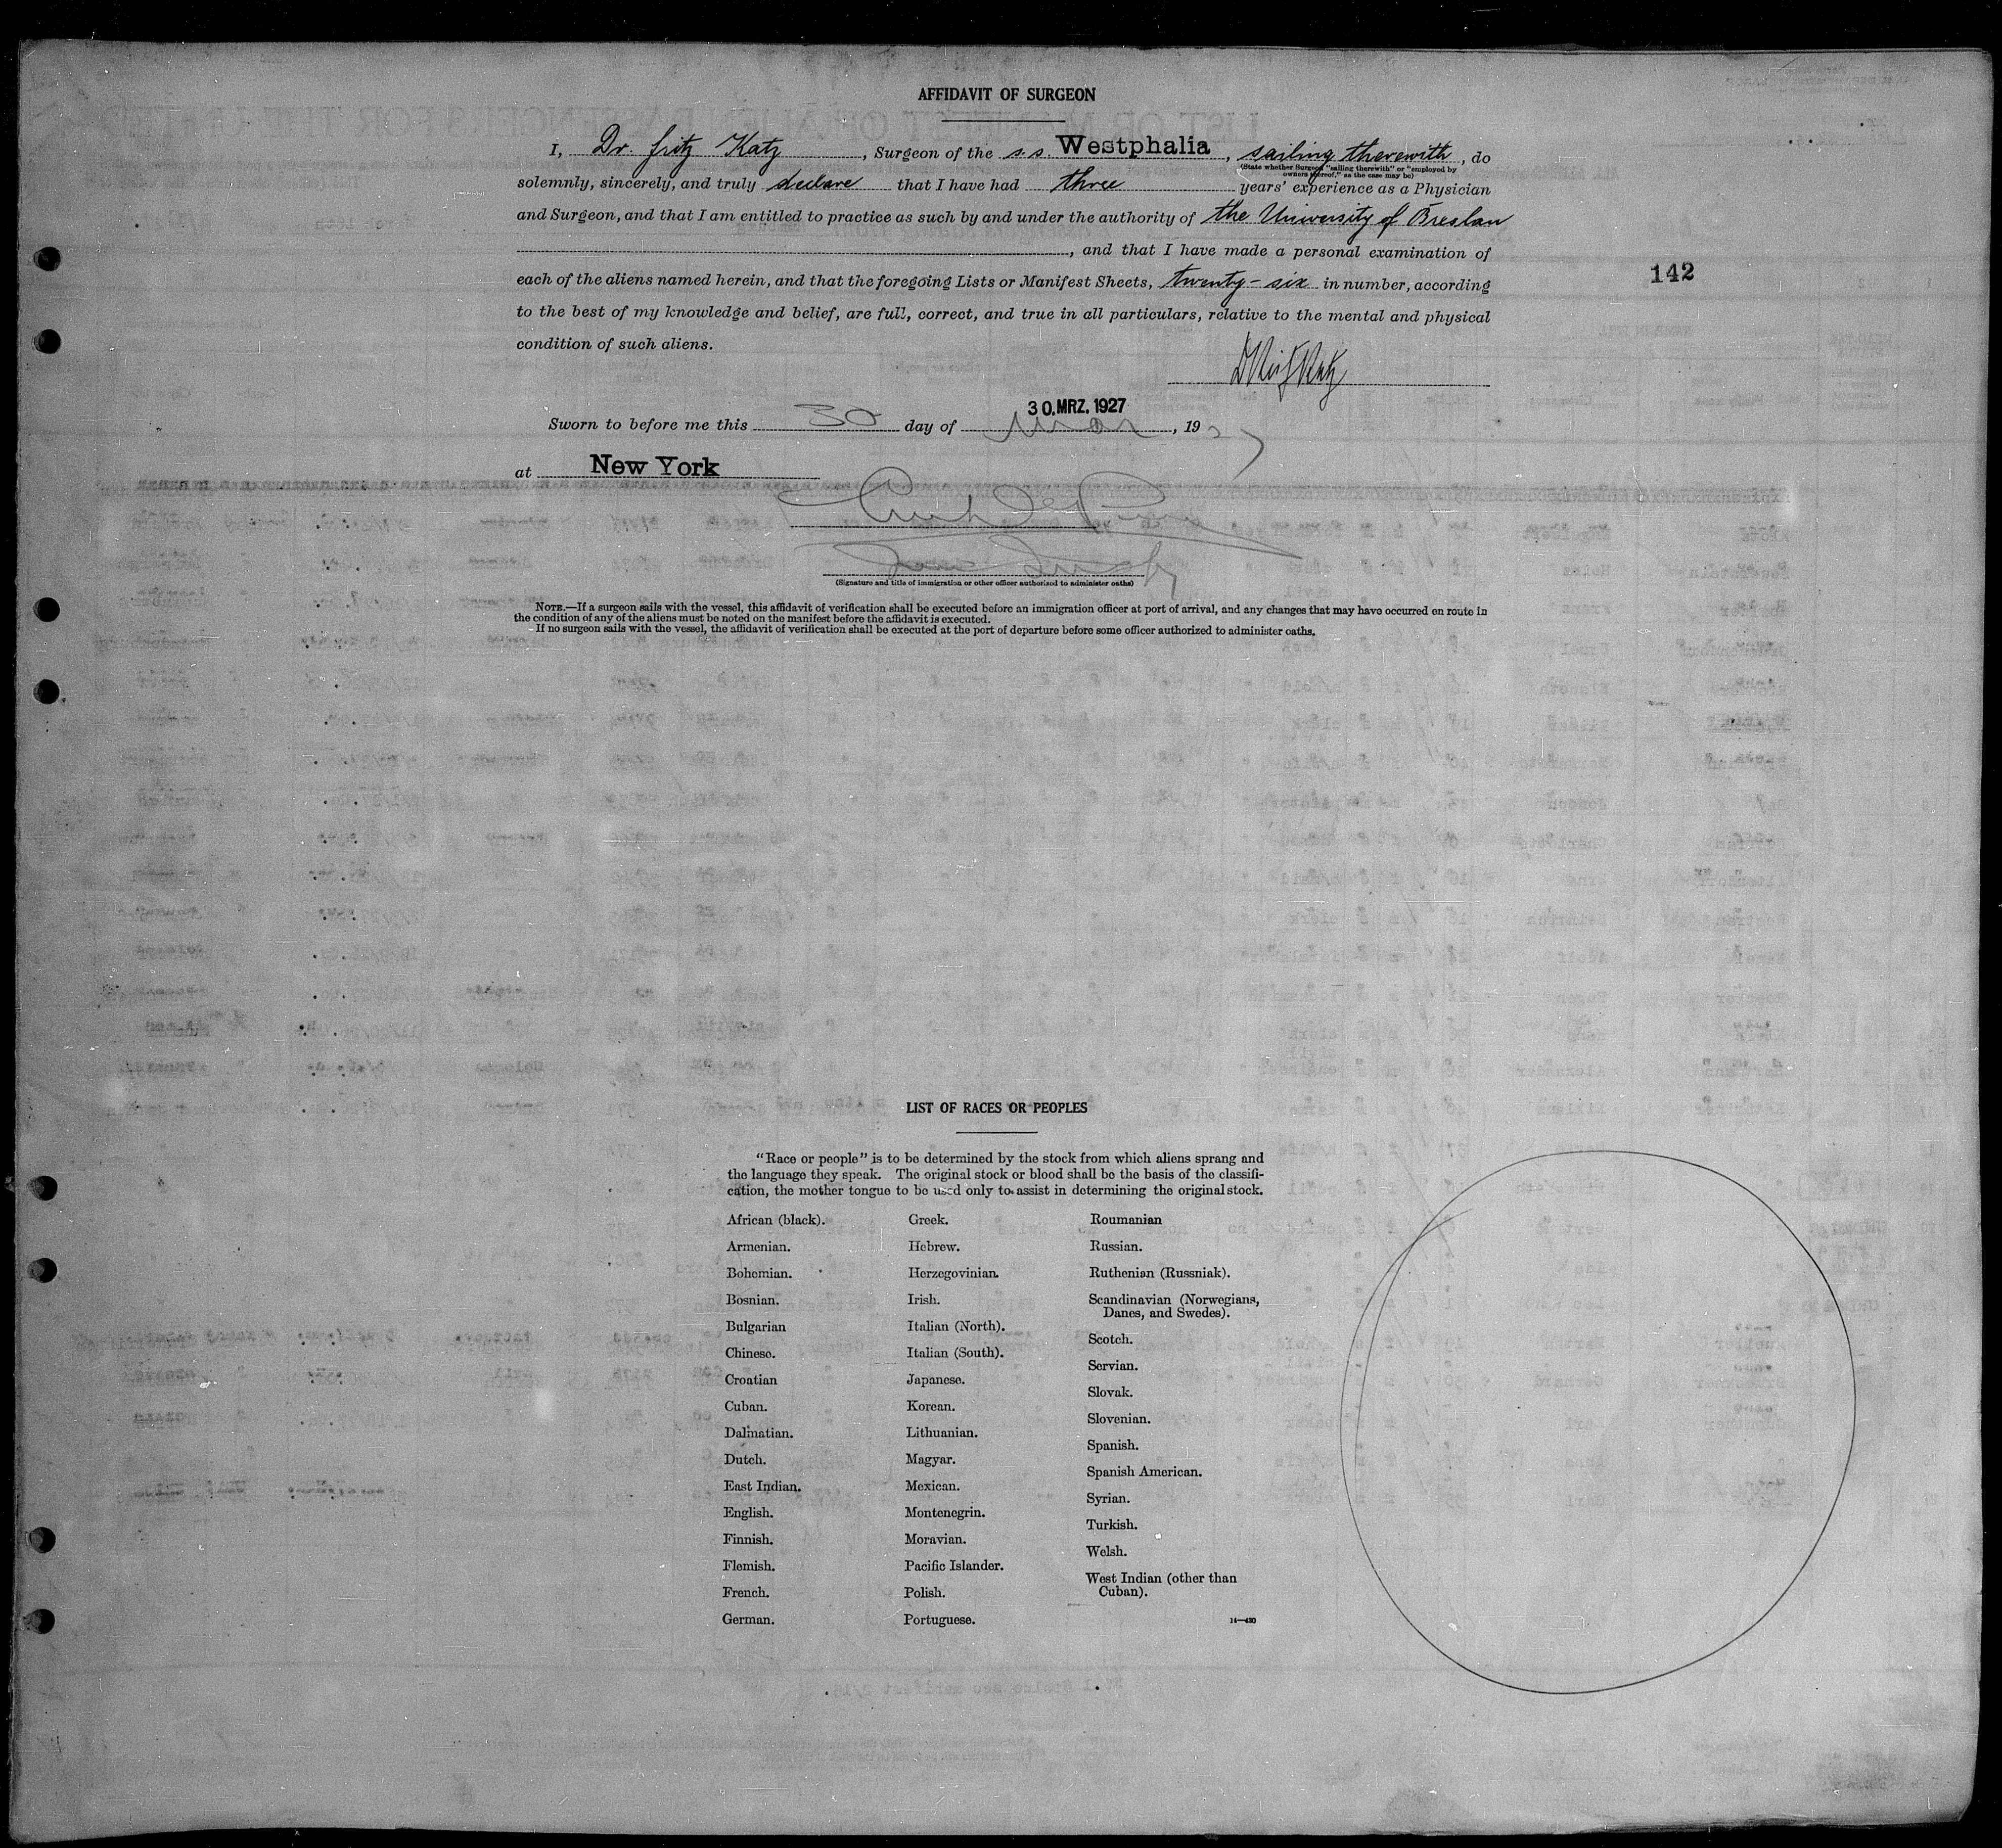 AFFIDAVIT OF SURGEON
I, Dr. Fritz Katz, Surgeon of the s.s. Westphalia, sailing therewith, do
(State whether Surgeon "sailing therewith" or "employed by
owners thereof," as the case may be)
solemnly, sincerely, and truly declare that I have had three years' experience as a Physician
and Surgeon, and that I am entitled to practice as such by and under the authority of the University of Breslau
, and that I have made a personal examination of
each of the aliens named herein, and that the foregoing Lists or Manifest Sheets, twenty-six in number, according
142
to the best of my knowledge and belief, are full, correct, and true in all particulars, relative to the mental and physical
condition of such aliens.
30.MRZ.1927
Sworn to before me this 30 day of Mar, 1927
at New York
(Signature and title of immigration or other officer authorized to administer oaths)
NOTE.—If a surgeon sails with the vessel, this affidavit of verification shall be executed before an immigration officer at port of arrival, and any changes that may have occurred en route in
the condition of any of the aliens must be noted on the manifest before the affidavit is executed.
If no surgeon sails with the vessel, the affidavit of verification shall be executed at the port of departure before some officer authorized to administer oaths.
LIST OF RACES OR PEOPLES
"Race or people" is to be determined by the stock from which aliens sprang and
the language they speak. The original stock or blood shall be the basis of the classifi-
cation, the mother tongue to be used only to assist in determining the original stock.
African (black).
Armenian.
Bohemian.
Bosnian.
Bulgarian
Chinese.
Croatian
Cuban.
Dalmatian.
Dutch.
East Indian.
English.
Finnish.
Flemish.
French.
German.
Greek.
Hebrew.
Herzegovinian.
Irish.
Italian (North).
Italian (South).
Japanese.
Korean.
Lithuanian.
Magyar.
Mexican.
Montenegrin.
Moravian.
Pacific Islander.
Polish.
Portuguese.
Roumanian
Russian.
Ruthenian (Russniak).
Scandinavian (Norwegians,
Danes, and Swedes).
Scotch.
Servian.
Slovak.
Slovenian.
Spanish.
Spanish American.
Syrian.
Turkish.
Welsh.
West Indian (other than
Cuban).
14—430